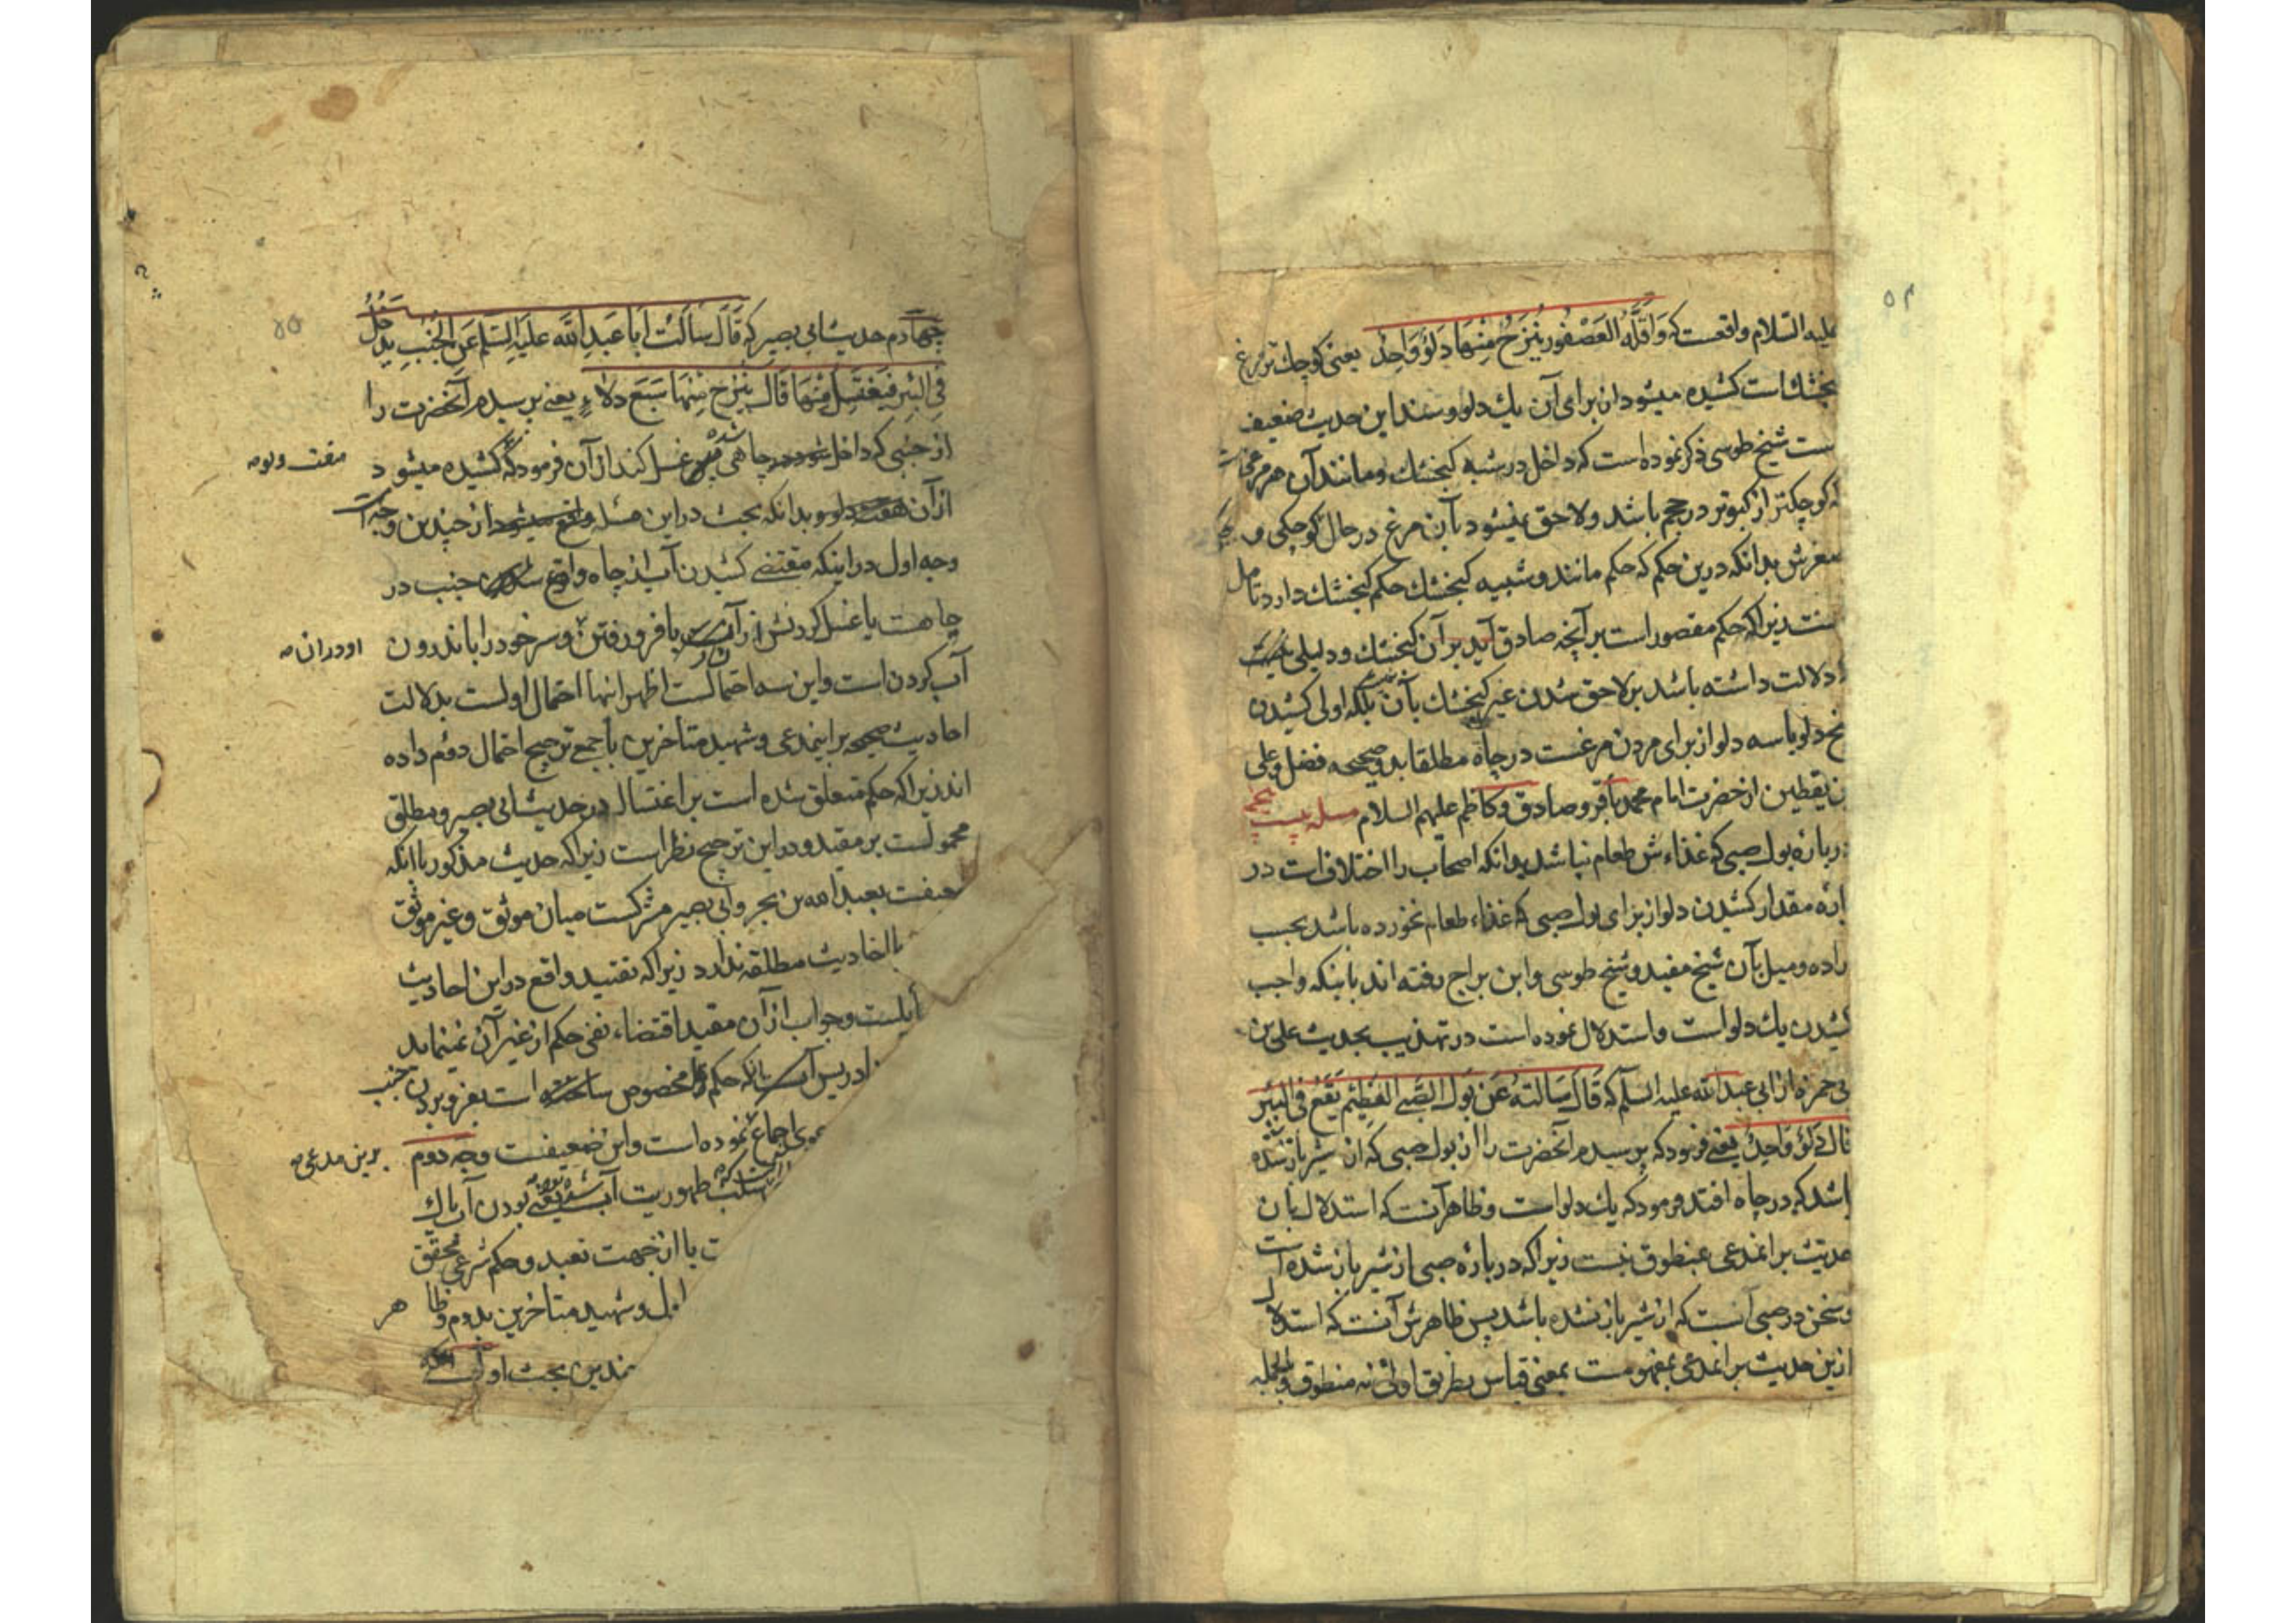 علیه السلام واقعست که وَاَقَلُّهُ العُصْفُور یُنْزَحُ مِنْهَا دَلْوٌ وَاحِدٌ یعنی کوچك تر مرغ
کنجشك است کشیده میشود از برای آن یك دلو و سند این حدیث ضعیف
ست شیخ طوسی ذکر نموده است که داخل در شبه کنجشك و مانند آن هر مرغی است
که کوچکتر از کبوتر در حجم باشد و لاحق نمیشود بآن مرغ در حال کوچکی و
صغرش بدانکه درین حکم که حکم مانند و شبیه کنجشك حکم کنجشك دارد تامل
ست زیرا که حکم مقصور است بر آنچه صادق آید بر آن کنجشك و دلیلی نیست
دلالت داشته باشد بر لاحق شدن غیر کنجشك بآن بلکه اولی کشیدن
پنج دلو یا سه دلو از برای مردن مرغست در چاه مطلقا بدو صحیحه فضل و علی
بن یقطین از حضرت امام محمد باقر و صادق و کاظم علیهم السلام مسله بیست پنجم
درباره بول صبی که غذاءش طعام نباشد بدانکه اصحاب را اختلاف است در
باره مقدار کشیدن دلو از برای بول صبی که غذاء طعام نخورده باشد بحسب
اراده و میل بآن شیخ مفید و شیخ طوسی و ابن براج رفته اند باینکه واجب
کشیدن یك دلو است و استدلال نموده است در تهذیب بحدیث علی بن
بی حمزه از ابی عبد الله علیه السلم که قَالَ سَالتهُ عَنْ بَول الصَّبِی الفَطِیْم یَقَعُ فِی الْبِئْرِ
قال دَلْوٌ وَاحِدٌ یعنی فرمود که پرسیدم آنحضرت را از بول صبی که از شیر باز شده
باشد که در چاه افتد فرمود که یك دلو است و ظاهر آنست که استدلال بان
حدیث بر اینمدعی بمنطوق نیست زیرا که درباره صبی از شیر باز شده است
و سخن در صبی آنست که از شیر باز نشده باشد پس ظاهرش آنست که استدلال
از ین حدیث بر اینمدعی بمفهومست بمعنی قیاس بطریق اولی نه منطوق و بالجمله
٥٢
چهاردم حدیث ابی بصیر که قَالَ سَاَلْتُ اَبَا عَبدِ الله عَلَیْهِ السَّلَم عَنِ الْجُنُبِ یَدْخُلُ
فِی الْبِئرِ فَیَغْتَسِلُ مِنْهَا قَالَ یُنْزَحُ مِنْهَا سَبعَ دِلاءٍ یعنی پرسیدم آنحضرت را
از جنبی که داخل شده در چاهی پس غسل کند از آن فرمود که کشیده میشود
از آن هفت دلو و بدانکه بحث در این مسئله واقع میشود از چندین وجه است
وجه اول در اینکه مقتضی کشیدن آب از چاه واقع شدن جنب در
چاهست یا غسل کردنش از آن یا فرو رفتن و سر خود را باندرون
آب کردن است و این سه احتمالست اظهر اینها احتمال اولست بدلالت
احادیث صحیحه بر اینمدعی و شهید متاخرین با جمعی ترجیح احتمال دوم داده
اند زیرا که حکم متعلق شده است بر اغتسال در حدیث ابی بصیر و مطلق
محمولست بر مقید و در این ترجیح نظر است زیرا که حدیث مذکور با انکه
ضعیفت بعبد الله بن بحر و ابی بصیر مشرکست میان موثق و غیر موثق
الحادیث مطلقه ندارد زیرا که تقیید واقع در این احادیث
یلست و جواب از آن مقید اقتضاء نفی حکم از غیر آن نمینماید
ادریس بانکه حکم مخصوص ساخته است بفرو بردن جنب
اجماع نموده است و این ضعیفست وجه دوم
سلب طهوریت آب یعنی بودن آن پاك
ت یا از جهت تعبد و حکم شرعی محقق
اول و شهید متاخرین بدوم و ظاهر
ندین بحث اولست
هفت دلو
او در ان
برین مدعی
٥٥